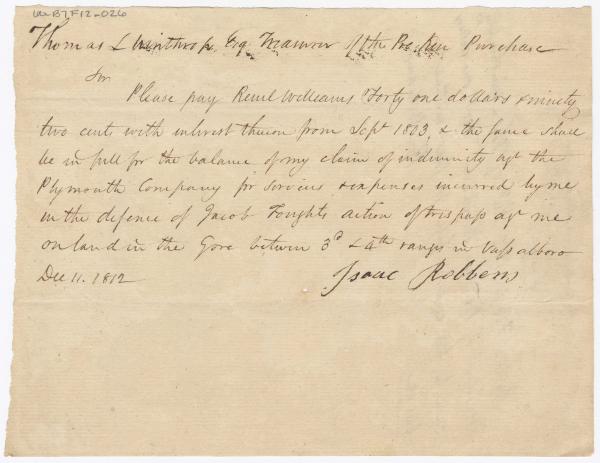 WB7F12-026
Thomas L Winthrop Esq Treasurer of the Purchase
Sir
Please pay Reuel Williams Forty one dollars & ninety
two cents with interest thereon from Sept 1803, & the same shall
be in full for the balance of my claim of indemnity agt the
Plymouth Company for services & expenses incurred by me
in the defence of Jacob Foughts action of trespass agt me
on land in the Gore between 3d & 4th ranges in Vassalboro
Dec 11. 1812
Isaac Robbins